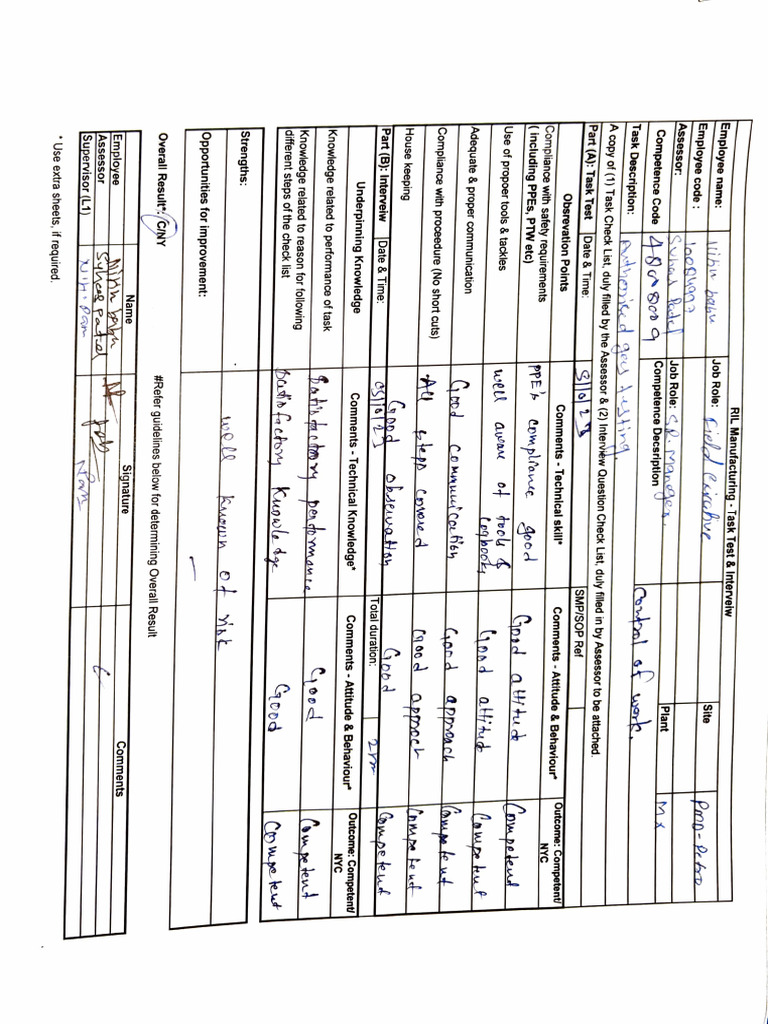 RIL Manufacturing - Task Test & Interveiw
Employee name: Nithin babu Job Role: Field Executive Site PMD-Petro
Employee code : 10084997
Assessor: Suhas Patel Job Role: SR. Manager Plant Mx
Competence Code 48008009 Competence Decsription Control of work.
Task Description: Authorised gas testing.
A copy of (1) Task Check List, duly filled by the Assessor & (2) Interview Question Check List, duly filled in by Assessor to be attached.
Part (A): Task Test Date & Time: 3/10/23 SMP/SOP Ref
Obsrevation Points Comments - Technical skill* Comments - Attitude & Behaviour* Outcome: Competent/ NYC
Compliance with safety requirements ( Including PPEs, PTW etc) PPE's compliance good Good attitud Competent
Use of propoer tools & tackles well aware of tools & logbooks Good attitud Competent
Adequate & proper communication Good communication Good approach Competent
Compliance with proceedure (No short cuts) All steps covered Good approch Competent
House keeping Good observation Good Competent
Part (B): Interveiw Date & Time: 03/10/23 Total duration:
Underpinning Knowledge Comments - Technical Knowledge* Comments - Attitude & Behaviour* Outcome: Competent/ NYC
Knowledge related to performance of task Satisfactory performance Good Competent
Knowledge related to reason for following different steps of the check list Satisfactory Knowledge Good Competent
Strengths: well known of risk
Opportunities for improvement: —
Overall Result*: C/NY #Refer guidelines below for determining Overall Result
Name Signature Comments
Employee Nithin babu
Assessor Suhas Patel
Supervisor (L1)
* Use extra sheets, if required.